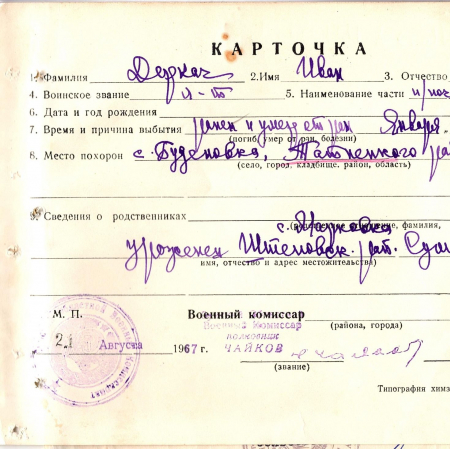 КАРТОЧКА
1. Фамилия Деркач 2. Имя Иван 3. Отчество
4. Воинское звание л-т 5. Наименование части п/поч
6. Дата и год рождения
7. Время и причина выбытия ранен и умер от ран Января
(погиб, умер от ран, болезни)
8. Место похорон с. Буденовка,
(село, город, кладбище, район, область)
9. Сведения о родственниках с.
фамилия,
уроженец Штеповск. рай. Сум
имя, отчество и адрес местожительства)
М. П. Военный комиссар
Военный Комиссар (района, города)
полковник
21 Августа 1967 г. ЧАЙКОВ
(звание)
Типография хим